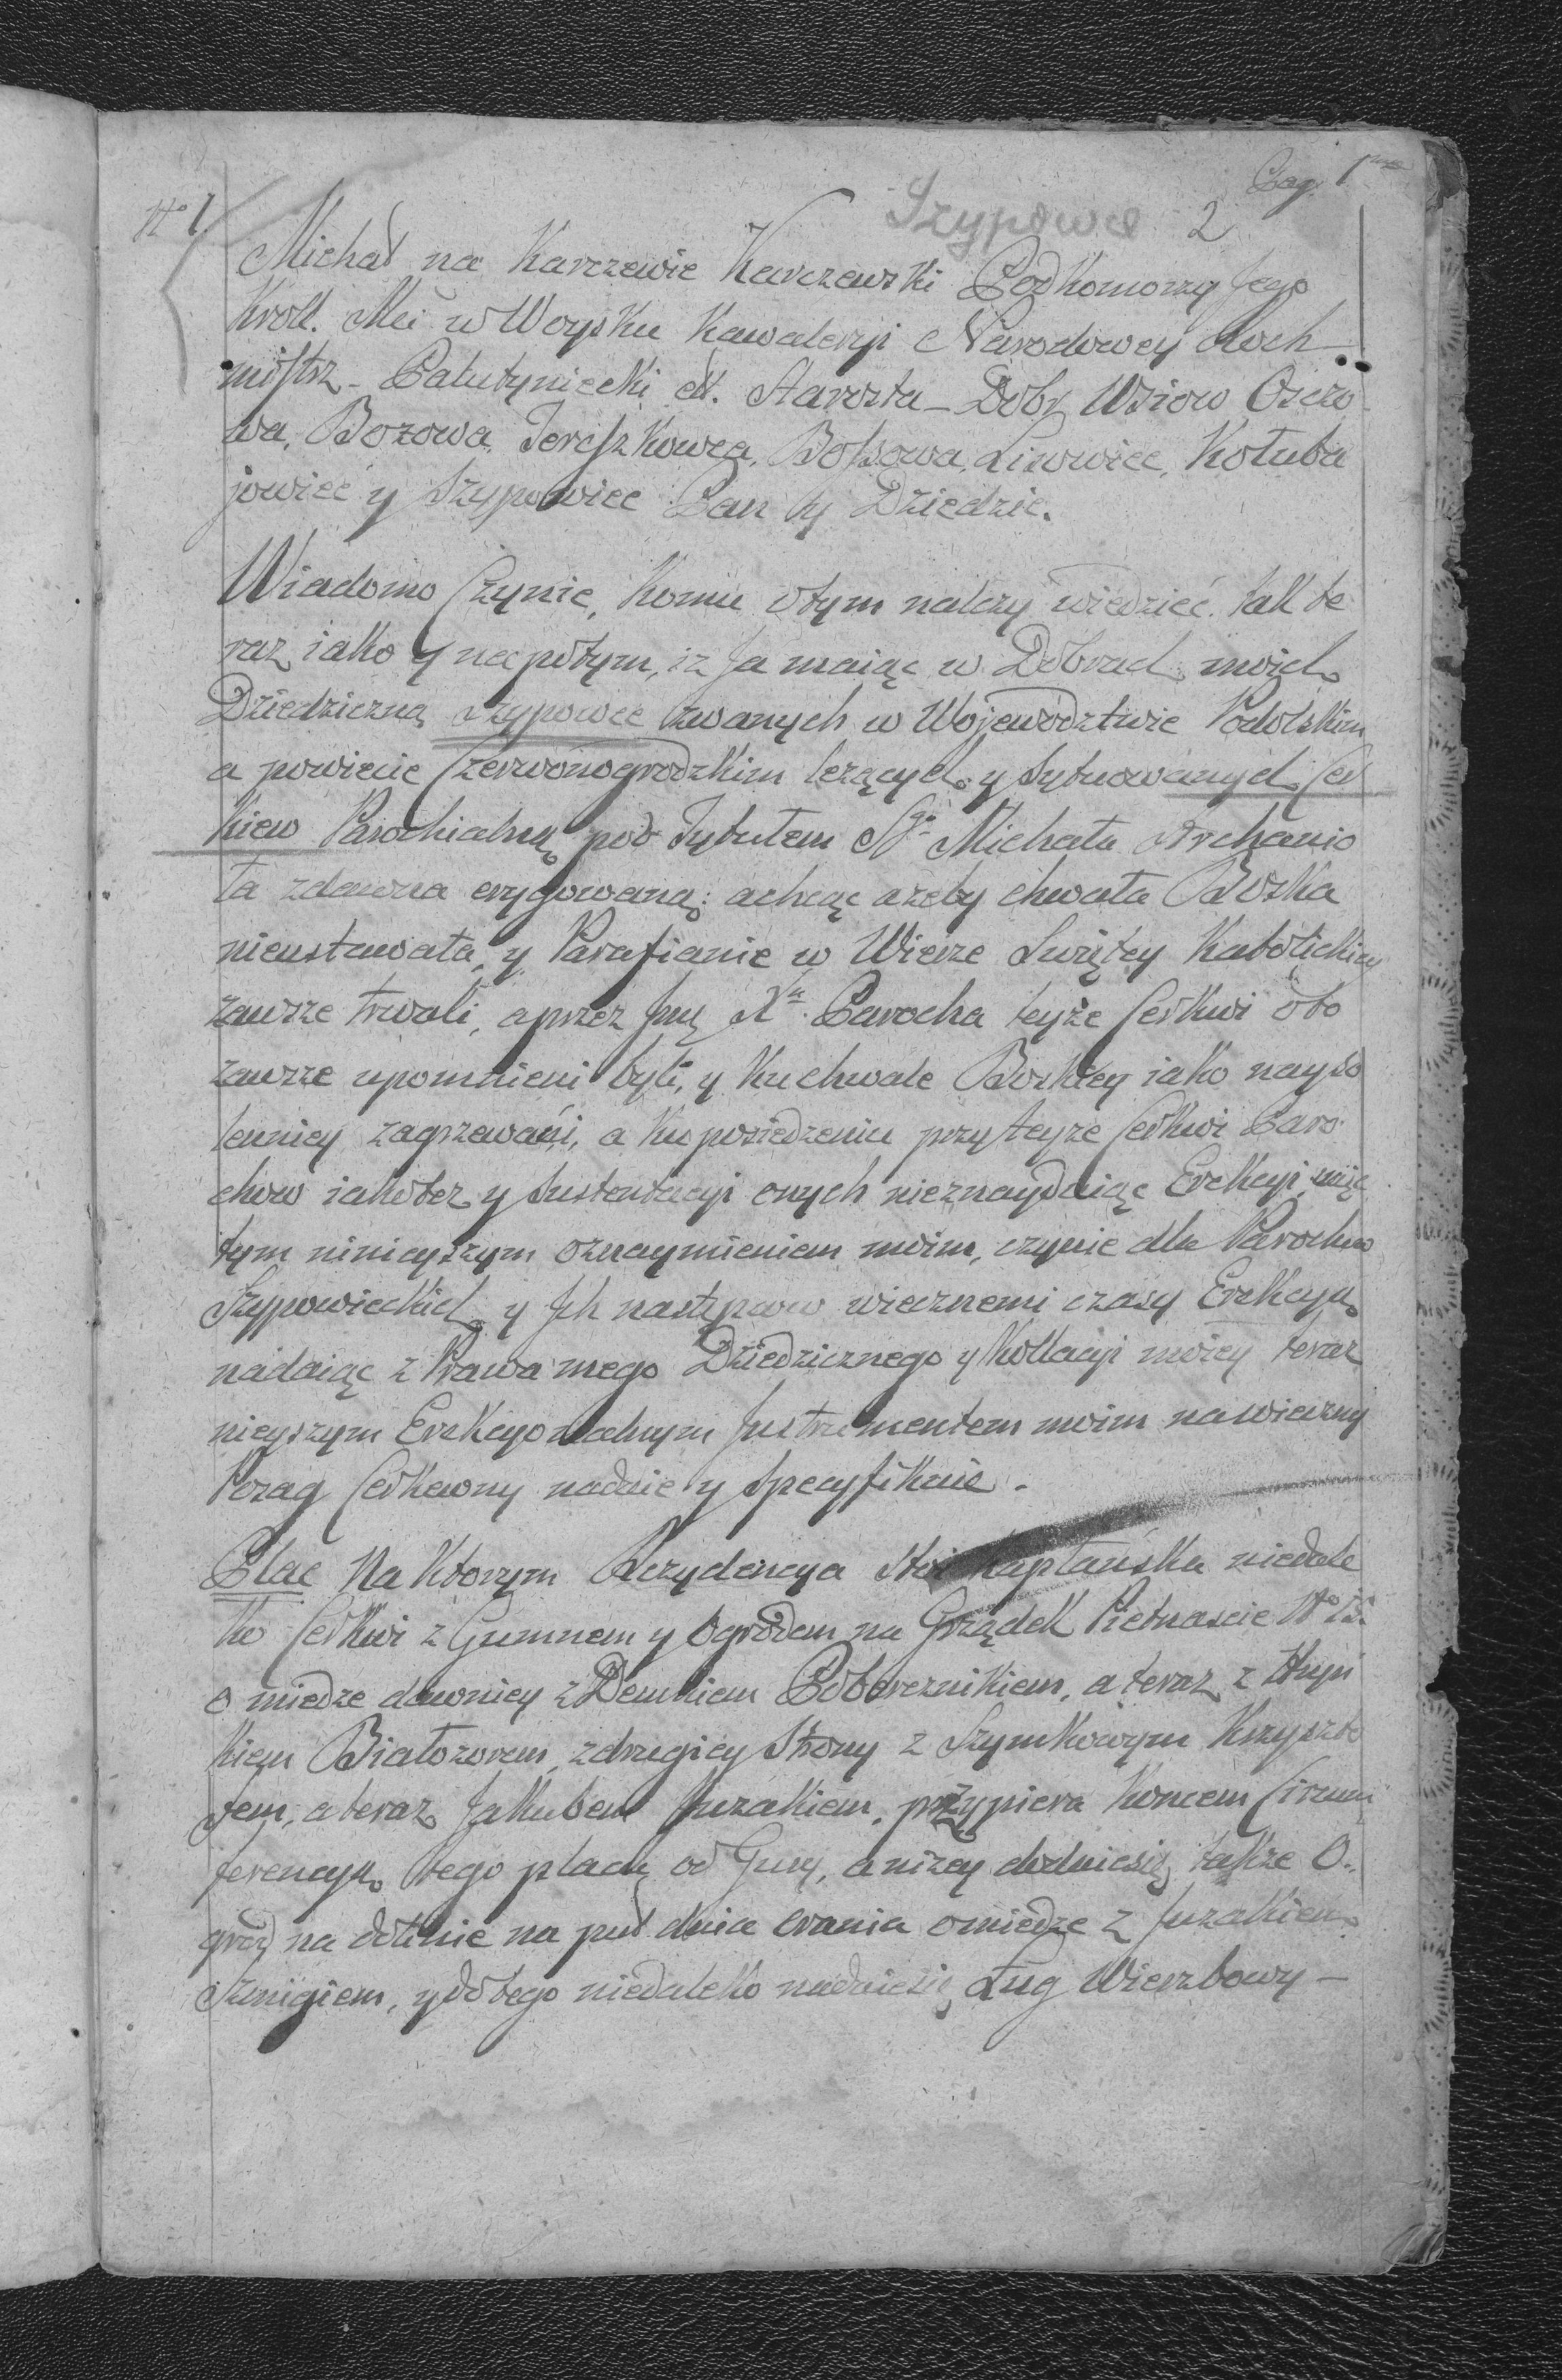 Pag. 1
Szypowce 2
N° 1.
Michał na Karczewie Karczewski PodKomorzy Jego
Kroll. Mci w WoysKu Kawaleryi Narodowey Roch
mistrz - Pałutyniecki &. Starosta - Dobr Wsiow
wa, Bozowa, TereszKowca, Bossowa, Kołuba
jowiec y Szypowiec Pan y Dziedzic.
Wiadomo Czynie, Komu otym należy wiedzieć, tak te
raz iako y napotym, iż Ja maiąc w Dobrach moich
Dziedziczną Szypowce zwanych w Wojewodztwie Podolskim
a powiecie Czerwonogrodzkim leżących y sytuowanych Cer
Kiew Parochialną pod Tytułem Sgo Michała Archanio
ła zdawna erygowaną; achcąc ażeby chwała Boska
nieustawała, y Parafianie w Wierze Swiętey Katolickiey
zawsze trwali, aprzez Jmć Xa. Parocha teyże Cerkwi oto
zawsze upomnieni byli, y Kuchwale Boskiey iako nayso
lenniey zagrzewani, a Ku posiedzeniu przyteyże Cerkwi Paro
chow iakotez y sustentacyi onych nieznayduiąc Erekcyi, więc
tym ninieyszym oznaymieniem moim, czynie dla Parochow
Szypowieckich y Jch następcow wiecznemi czasy Erekcyą
nadaiąc z Prawa mego Dziedzicznego y Kollacyi moiey teraz
nieyszym Erekcyonalnym Jnstrumentem moim nawieczny
Posag Cerkewny nadaie y specyfikuie.
Plac Na Ktorym Rezydencya Stoi Kapłańska niedale
Ko Cerkwi z Gumnem y Ogrodem na Grządek Pietnascie N° 15.
o miedze dawniey z Demkiem Pobereznikiem, a teraz z Hryń
Kiem Białozorem, zdrugiey Strony z Szymkowym Krzyszto
fem, ateraz Jakubem Juzakiem, przypiera Koncem Circum
ferencyą tego placu od Gury, aniżey dodaiesię także O.
grod na dolinie na puł dnia orania omiedze z Juzakiem
, ydotego niedaleko nadaiesię Ług Wierzbowy -